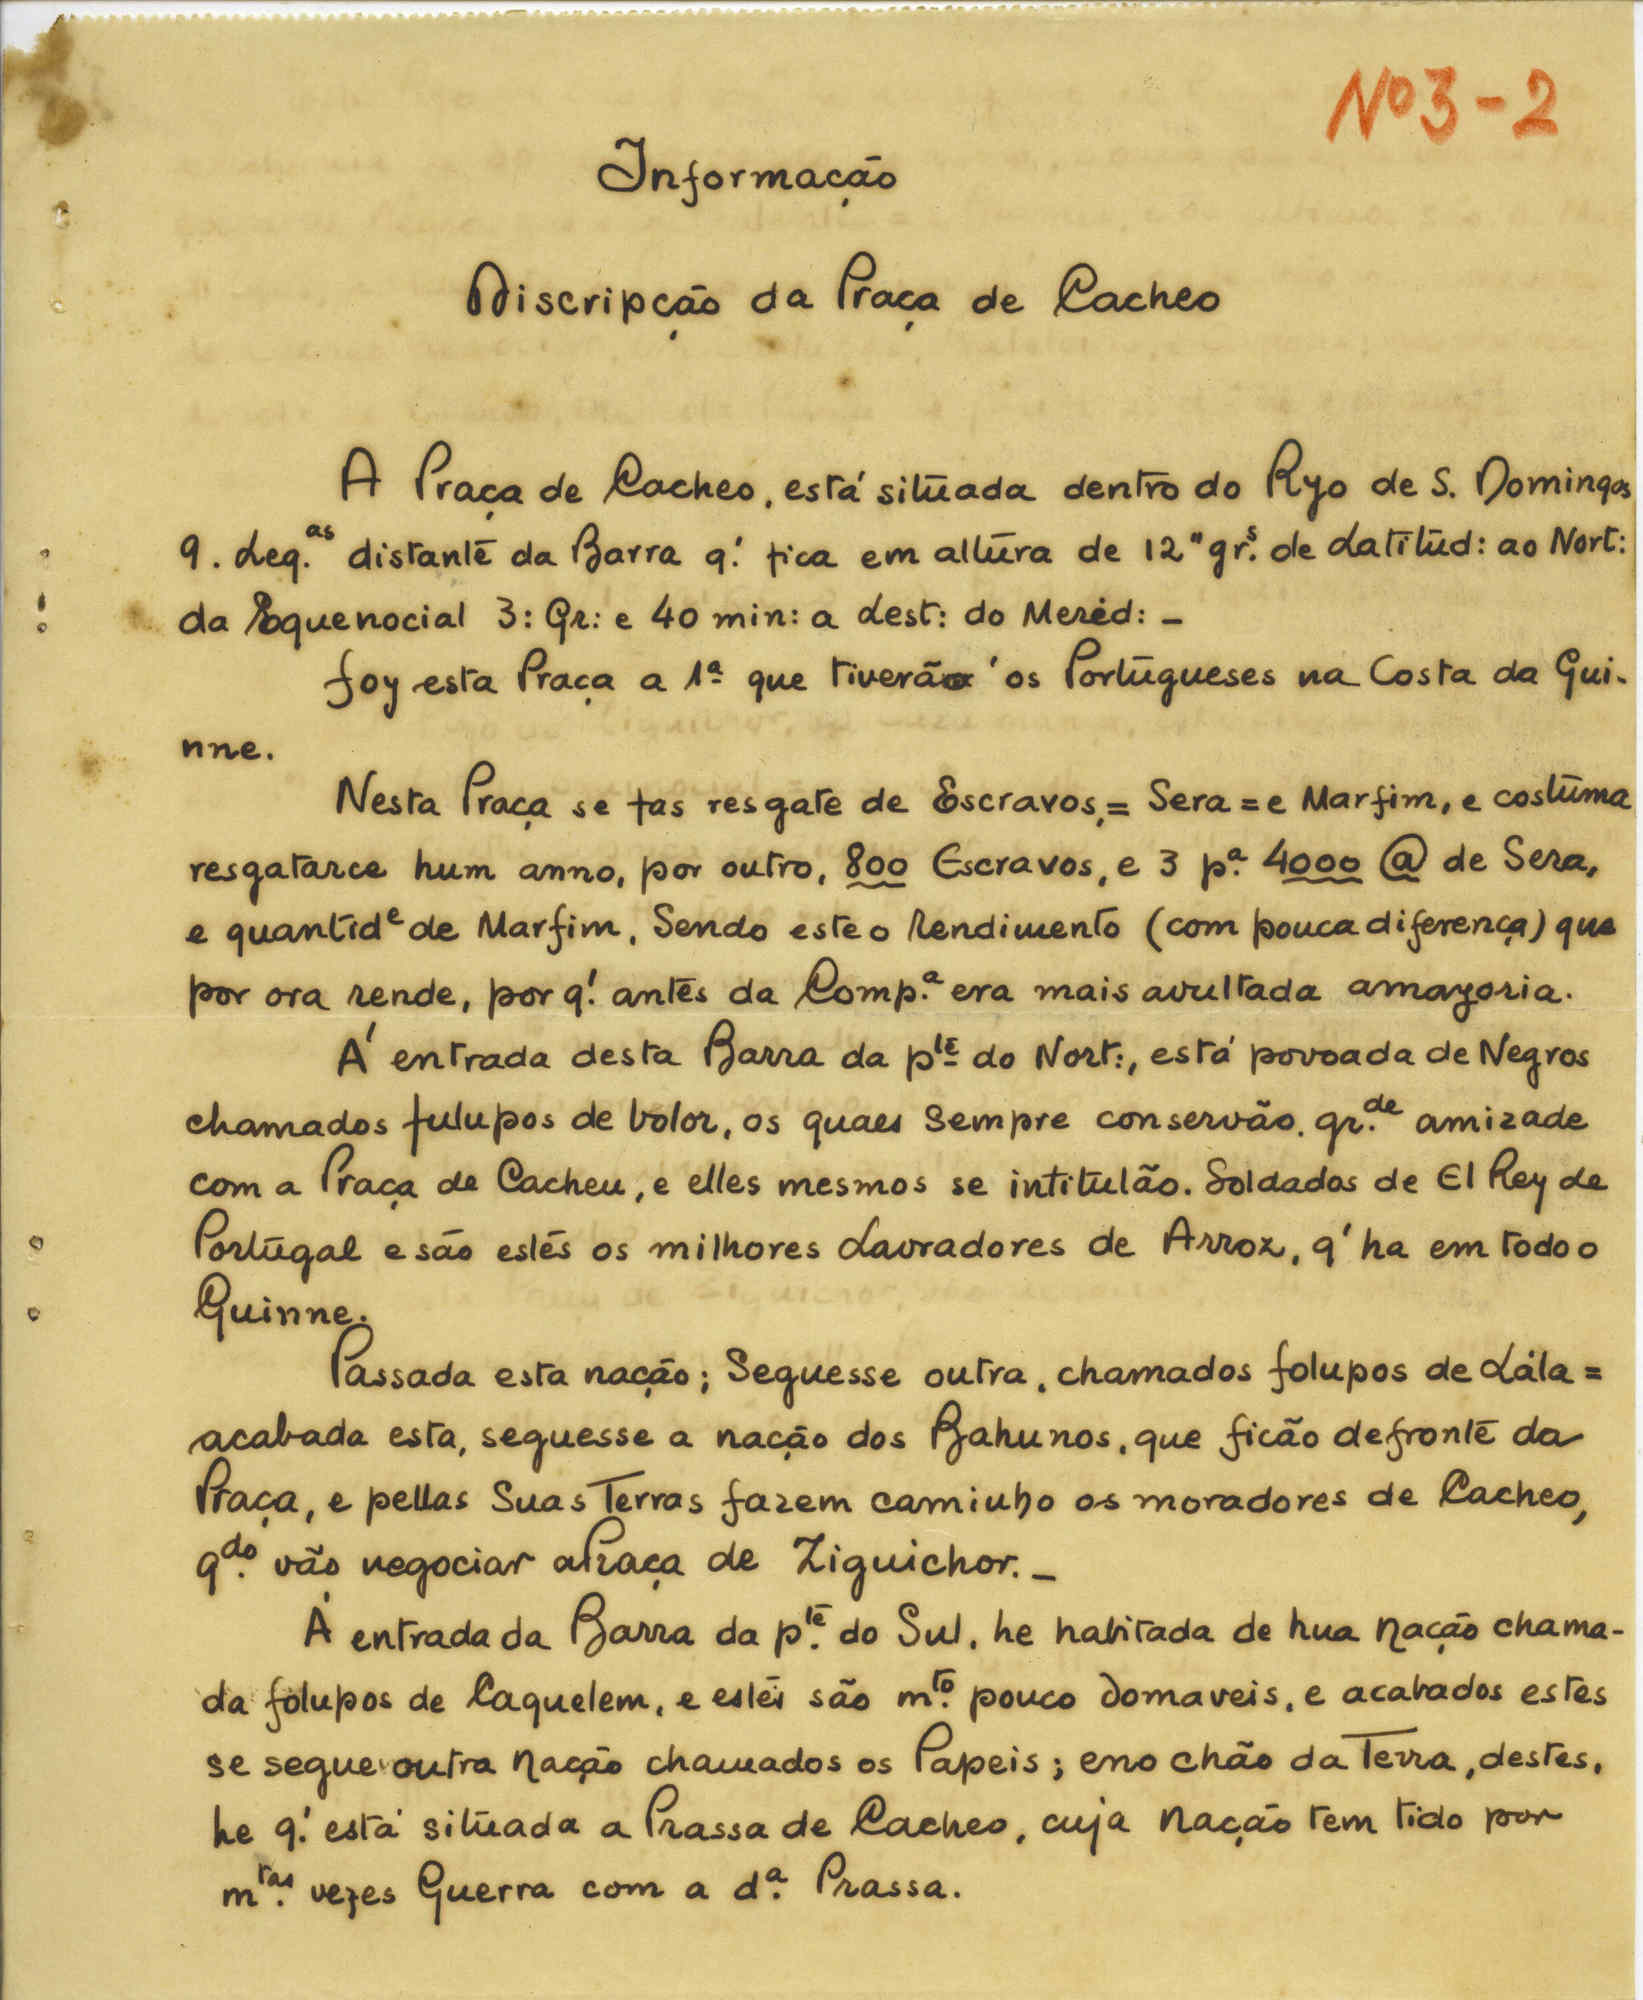 Nº 3-2
Informação
Discripção da Praça de Cacheo
A Praça de Cacheo, está situada dentro do Ryo de S. Domingos
9. Leg.as distante da Barra q.' fica em altura de 12" gr.s de Latitud: ao Nort:
da Equenocial 3: Gr: e 40 min: a Lest: do Meréd: _
foy esta Praça a 1ª que tiverão os Portugueses na Costa da Gui-
nne.
Nesta Praça se fas resgate de Escravos,= Sera = e Marfim, e costuma
resgatarce hum anno, por outro, 800 Escravos, e 3 p.ª 4000 @ de Sera,
e quantid.e de Marfim, Sendo este o Rendimento (com pouca diferença) que
por ora rende, por q.' antes da Comp.ª era mais avultada amayoria.
Á entrada desta Barra da p.te do Nort:, está povoada de Negros
chamados fulupos de bolor, os quaes Sempre conservão. gr.de amizade
com a Praça de Cacheu, e elles mesmos se intitulão. Soldados de El Rey de
Portugal e são estes os milhores Lavradores de Arroz, q' ha em todo o
Guinne.
Passada esta nação; Seguesse outra, chamados folupos de Lála =
acabada esta, seguesse a nação dos Bahunos, que ficão defronte da
Praça, e pellas Suas Terras fazem caminho os moradores de Cacheo,
q.do vão negociar aPraça de Ziguichor. _
Á entrada da Barra da p.te do Sul, he habitada de hua Nação chama-
da folupos de Caquelem, e estes são m.to pouco domaveis, e acabados estes
se segue outra Nação chamados os Papeis; eno chão da Terra, destes,
he q.' está situada a Prassa de Cacheo, cuja Nação tem tido por
m.tas vezes Guerra com a d.ª Prassa.